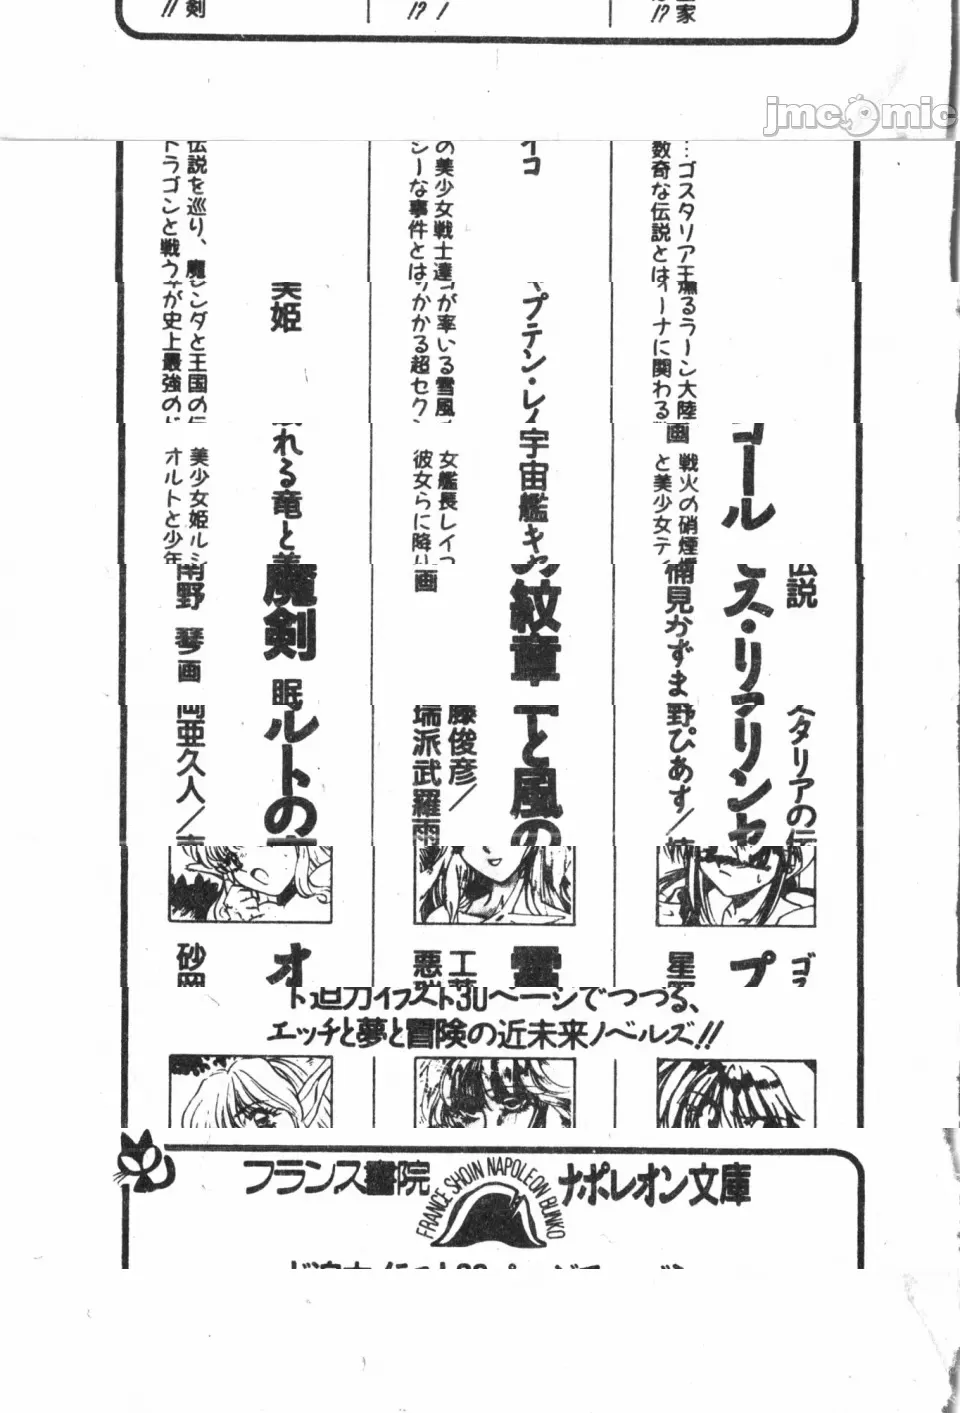 フランス書院 ナポレオン文庫
FRANCE SHOIN NAPOLEON BUNKO
ド迫力イラスト30ページでつづる、
エッチと夢と冒険の近未来ノベルズ!!
ゴスタリアの伝説
プリンセス・リゴール
星野ぴあす/
見かずま 画
戦火の硝煙燻るラーン大陸…ゴスタリア王家
と美少女ティーナに関わる数奇な伝説とは!?
雪と風の紋章
宇宙艦キャプテン・レイコ
工藤俊彦/
悪瑞派武羅雨 画
女艦長レイコが率いる雪風の美少女戦士達!
彼女らに降りかかる超セクシーな事件とは!?
オルトの魔剣
眠れる竜と美姫
砂岡亜久人/南野 琴 画
美少女姫ルシンダと王国の伝説を巡り、魔剣
オルトと少年が史上最強のドラゴンと戦う!!
jmcomic